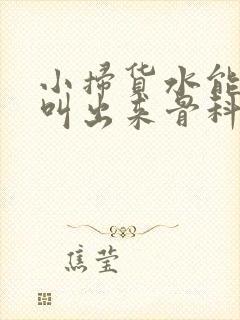 小掃货水能
叫出来骨科
焦莹